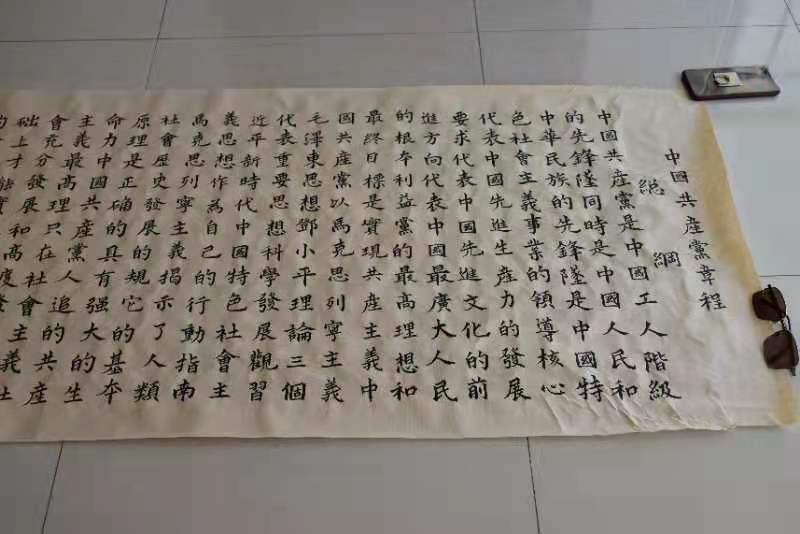 中國共產黨章程
総綱
中國共產黨是中國工人階級
的先鋒墜同時是中國人民和
中華民族的先鋒墜是中國特
色社會主義事業的領導核心
代表中國先進生產力的發展
要求代表中國先進文化的前
進方向代表中國最廣大人民
的根本利益黨的最高理想和
最終目標是實現共產主義中
國共產黨以馬克思列寧主義
毛澤東思想鄧小平理論三個
代表重要思想科學發展觀習
近平新時代中國特色社會主
義思想作為自己的行動指南
馬克思列寧主義揭示了人類
社會歷史發展的規它的基本
原理是正確的具有強大的生
命力中國共產黨人追的共產
主義最高理只在社會主義社
會充分發展和高度發
礎上才能實